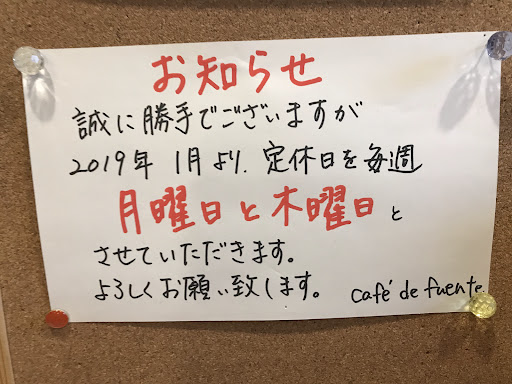 お知らせ
誠に勝手でございますが
2019年 1月より、定休日を毎週
月曜日と木曜日と
させていただきます。
よろしくお願い致します。 café de fuente.